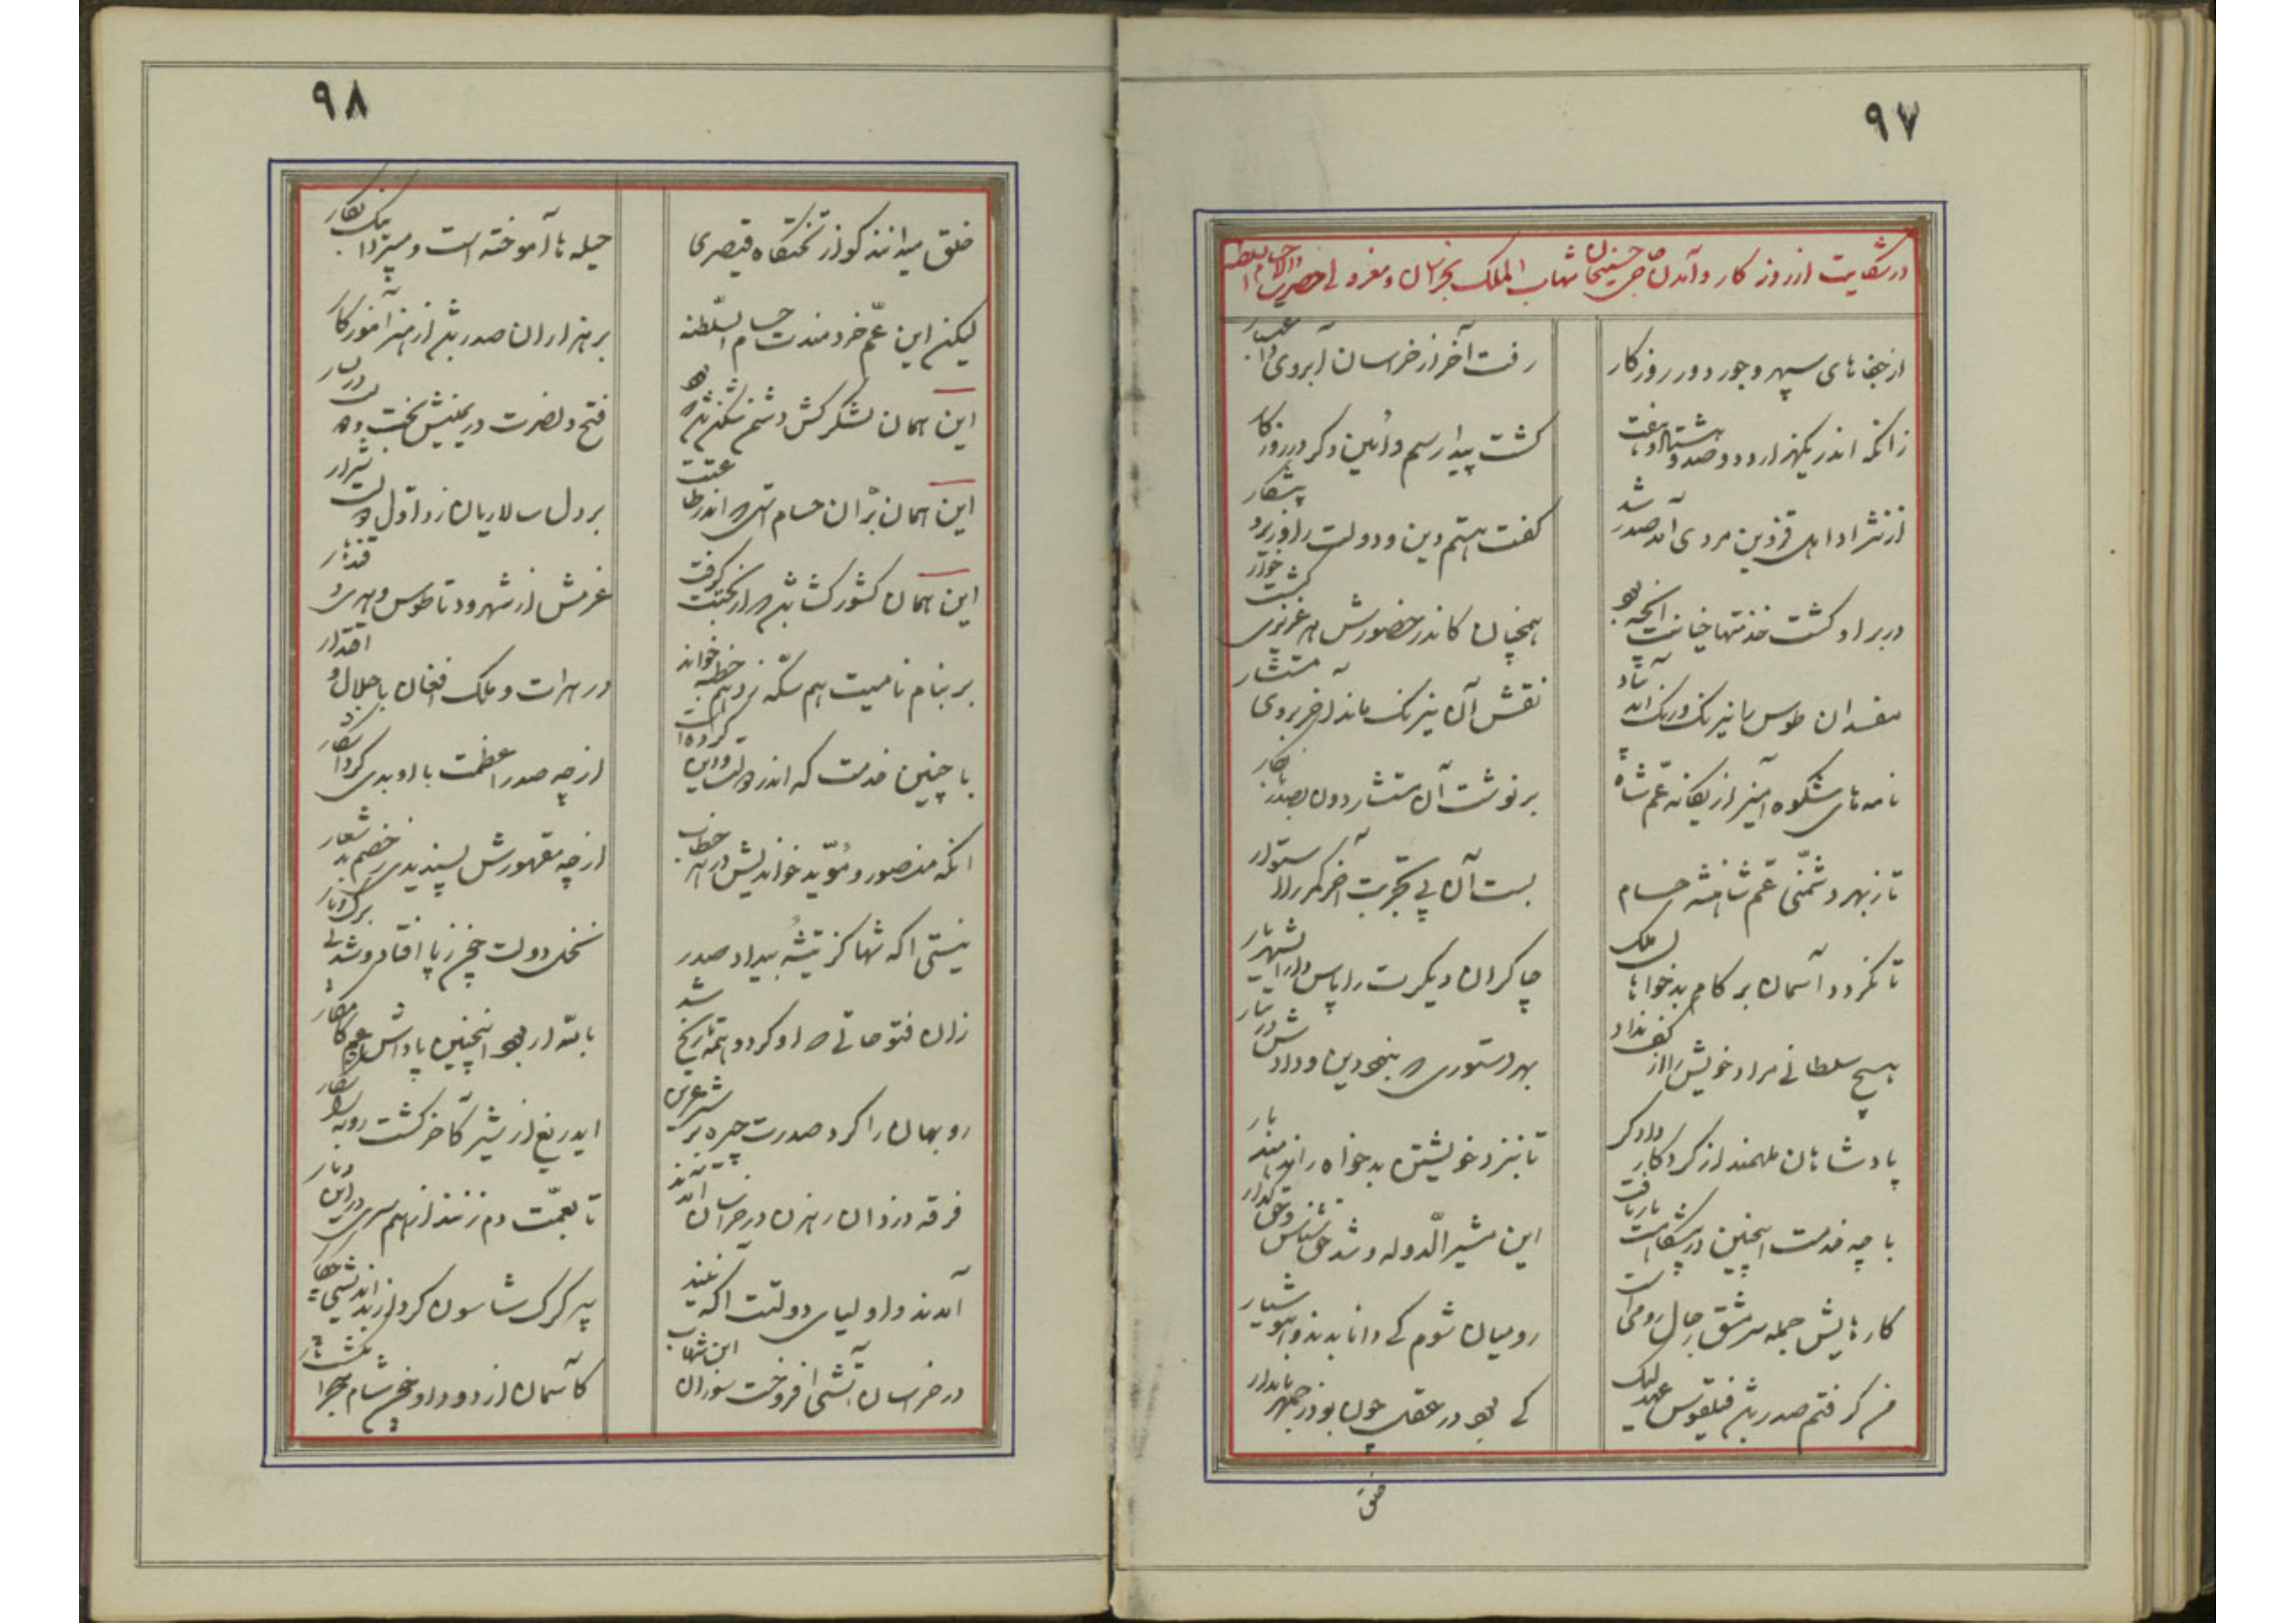 ۹۷
در شکایت از روزگار و آمدن حاجی حسینخان شهاب الملک بخراسان و معزولی حضرت والا حسام السلطنه
از جفاهای سپهر و جور دور روزگار
رفت آخر از خراسان آبروی و اعتبار
زانکه اندر یکهزار و دوصد و هشتاد و هفت
گشت پیدا رسم و آئین دگر در روزگار
از نژاد اهل قزوین مردی آمد صدر شد
گفت هستم دین و دولت را وزیر و پیشکار
در بر او گشت خدمتها خیانت آنچه بود
همچنان کاندر حضورش هر عزیزی گشت خوار
مفسدان طوس با نیرنگ و رنگ استاد
نقش آن نیرنگ ماند از خر بروی مستشار
نامه های شکوه آمیز از یگانه عم شاه
برنوشت آن مستشار دون بصدر
تا ز بهر دشمنی عم شاهنشه حسام
بست آن بی تجربت آخر کمر را استوار
تا نگردد آسمان بر کام بدخواهان ملک
چاکران دیگرت را پاس دار ای شهریار
هیچ سلطانی مراد خویش را از کف نداد
بهر دستوری که بنمود این و داد
پادشاهان ملهمند از کردگار دادگر
تا بنزد خویشتن بدخواه را ندهند بار
با چه خدمت اینچنین در پیشگاهت بار یافت
این مشیر الدوله و شد حق شناس و حق گذار
کارهایش جمله سرمشق رجال رومی است
رومیان شوم کی دانا بدند و هوشیار
من گرفتم صدر شد فیلقوس عهد لیک
کی بود در عقل چون بوذرجمهر نامدار
خلق
۹۸
خلق میدانند کو از تختگاه قیصری
حیله ها آموخته است و میپردا نیک بکار
لیکن این عم خردمندت حسام السلطنه
بر هزاران صدر شد از هنر آموزگار
این همان لشکرکش دشمن شکن شد که بود
فتح و نصرت در یمینش بخت و در یسار
این همان بران حسام تست کاندر طاعتت
بر دل سالاریان زد اول
این همان کشور گشا شد کز بختت گرفت
عزمش از شهرود تا طوس و هری و قندهار
بر بنام نامیت هم سکه زد هم خطبه خواند
در هرات و ملک افغان با جلال و اقتدار
با چنین خدمت که اندر دولت و دین کرده است
از چه صدر اعظمت با او بدی کرد آشکار
آنکه منصور و مؤید خواندیش در هر خطاب
از چه مقهورش پسندیدی ز خصم بد شعار
نیستی آگه شها کز تیشه بیداد صدر
نخل دولت خم ز پا افتاد و شد بی برگ و بار
زان فتوحاتی که او کرد و همه تاریخ شد
بالله ار بود اینچنین پاداش
روبهان را کرد صدرت چیره بر شیر عرین
ای دریغ از شیر کآخر گشت روبه را شکار
فرقه دزدان رهزن در خراسان آمدند
تا بعمت دم زنند از همسری در این دیار
آمدند و اولیای دولتت آگه نیند
پیر گرگ شاسون کرد از بد اندیشی چکار
در خراسان آتشی افروخت سوزان این شهاب
کآسمان از دود او چون شام هجران گشت تار